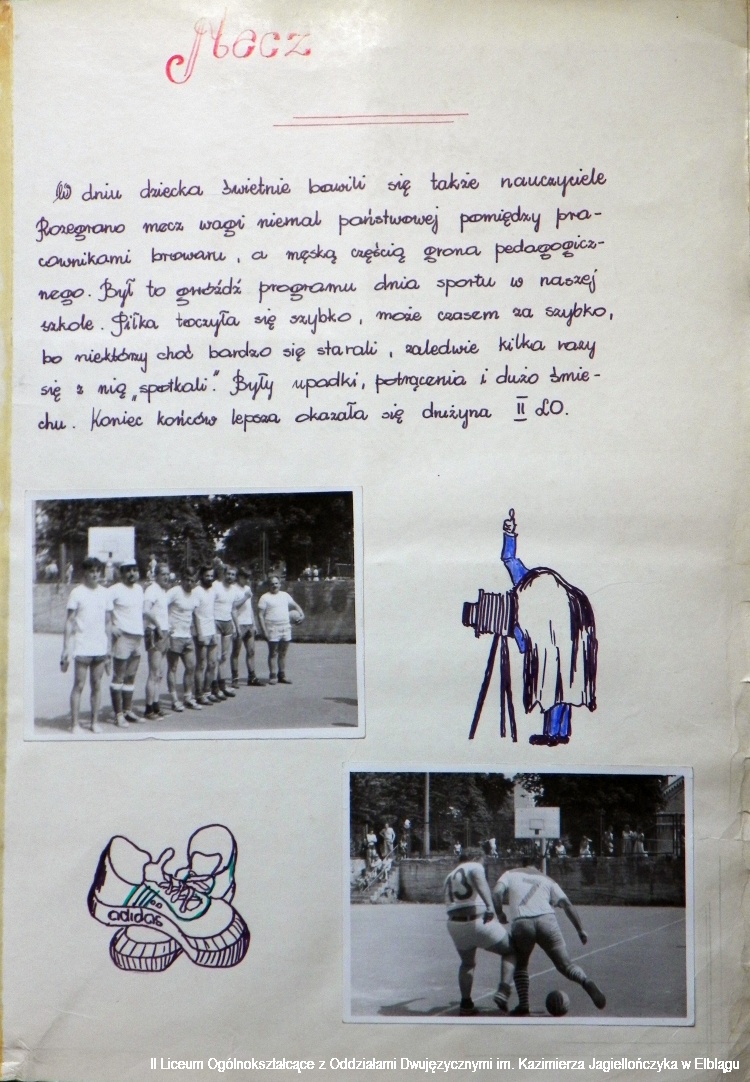 Mecz
W dniu dziecka świetnie bawili się także nauczyciele
Rozegrano mecz wagi niemal państwowej pomiędzy pra-
cownikami browaru, a męską częścią grona pedagogicz-
nego. Był to gwóźdź programu dnia sportu w naszej
szkole. Piłka toczyła się szybko, może czasem za szybko,
bo niektórzy choć bardzo się starali, zaledwie kilka razy
się z nią „spotkali." Były upadki, potrącenia i dużo śmie-
chu. Koniec końców lepsza okazała się drużyna II LO.
adidas
13 7
II Liceum Ogólnokształcące z Oddziałami Dwujęzycznymi im. Kazimierza Jagiellończyka w Elblągu